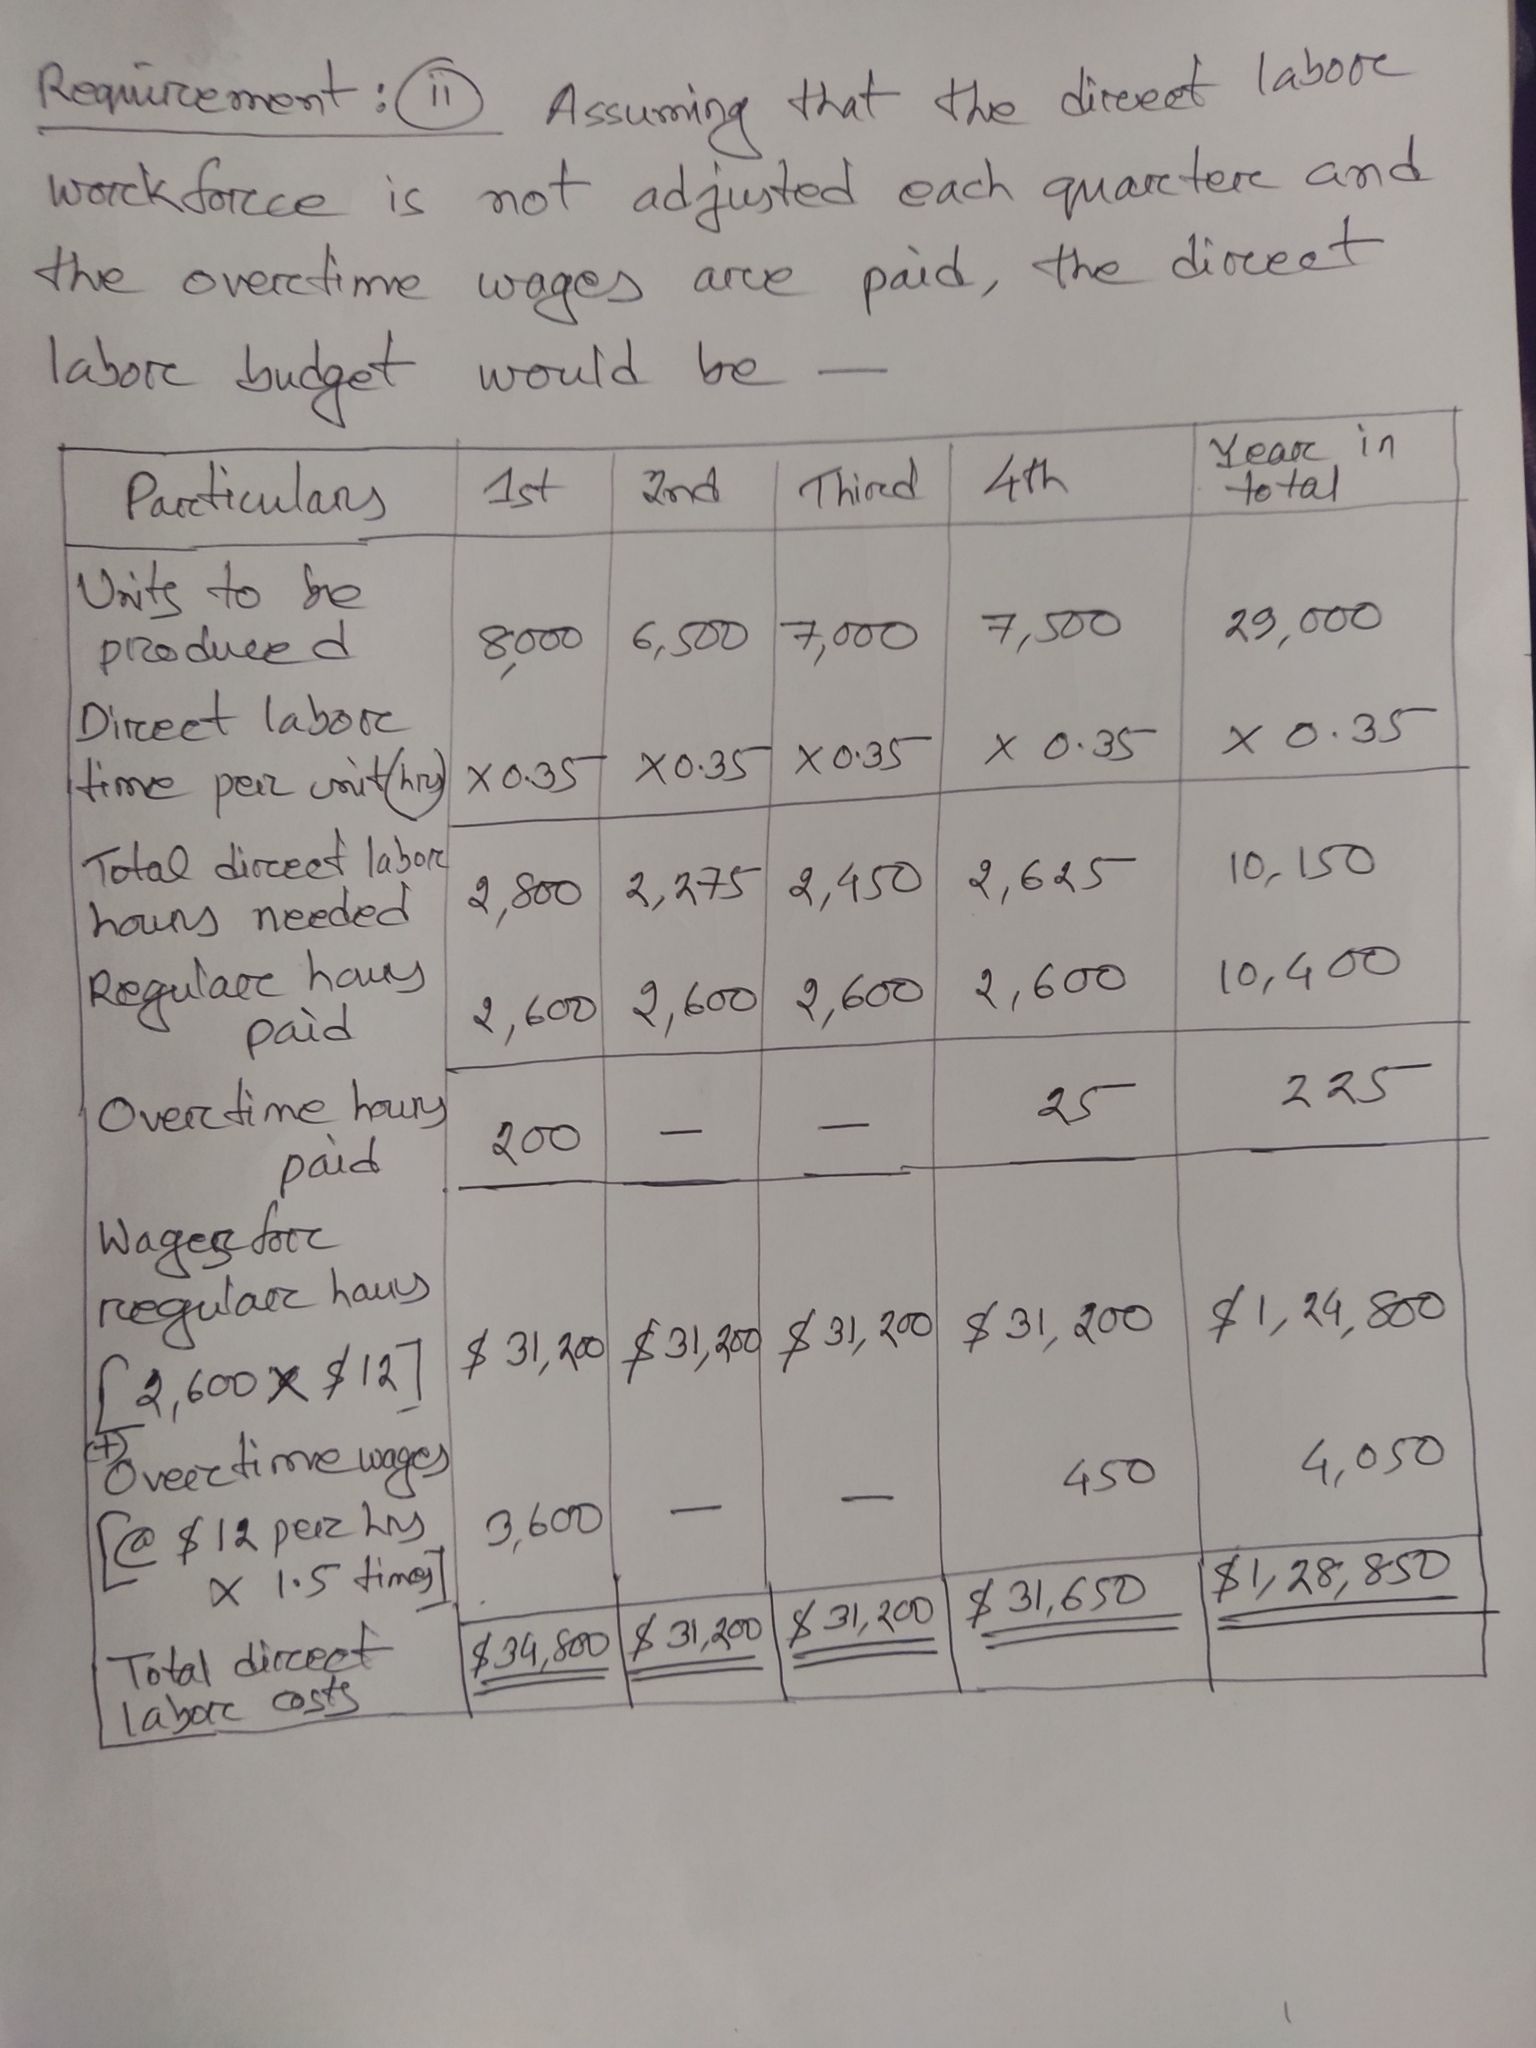 Requirement: (ii) Assuming that the direct labor
workforce is not adjusted each quarter and
the overtime wages are paid, the direct
labor budget would be —
Particulars 1st 2nd Third 4th Year in total
Units to be
produced 8,000 6,500 7,000 7,500 29,000
Direct labor
time per unit (hrs) x 0.35 x 0.35 x 0.35 x 0.35 x 0.35
Total direct labor
hours needed 2,800 2,275 2,450 2,625 10,150
Regular hours
paid 2,600 2,600 2,600 2,600 10,400
Overtime hours
paid 200 — — 25 225
Wages for
regular hours
[2,600 x $12] $31,200 $31,200 $31,200 $31,200 $1,24,800
(+) Overtime wages
[@ $12 per hrs 3,600 — — 450 4,050
x 1.5 times]
Total direct
labor costs $34,800 $31,200 $31,200 $31,650 $1,28,850